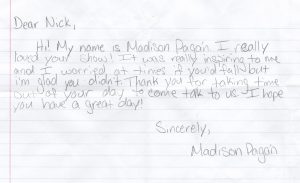 Dear Nick,
Hi! My name is Madison Pagan. I really
loved your show! It was really inspiring to me
and I worried at times if you'd fall but
I'm glad you didn't. Thank you for taking time
out of your day to come talk to us. I hope
you have a great day!
Sincerely,
Madison Pagan